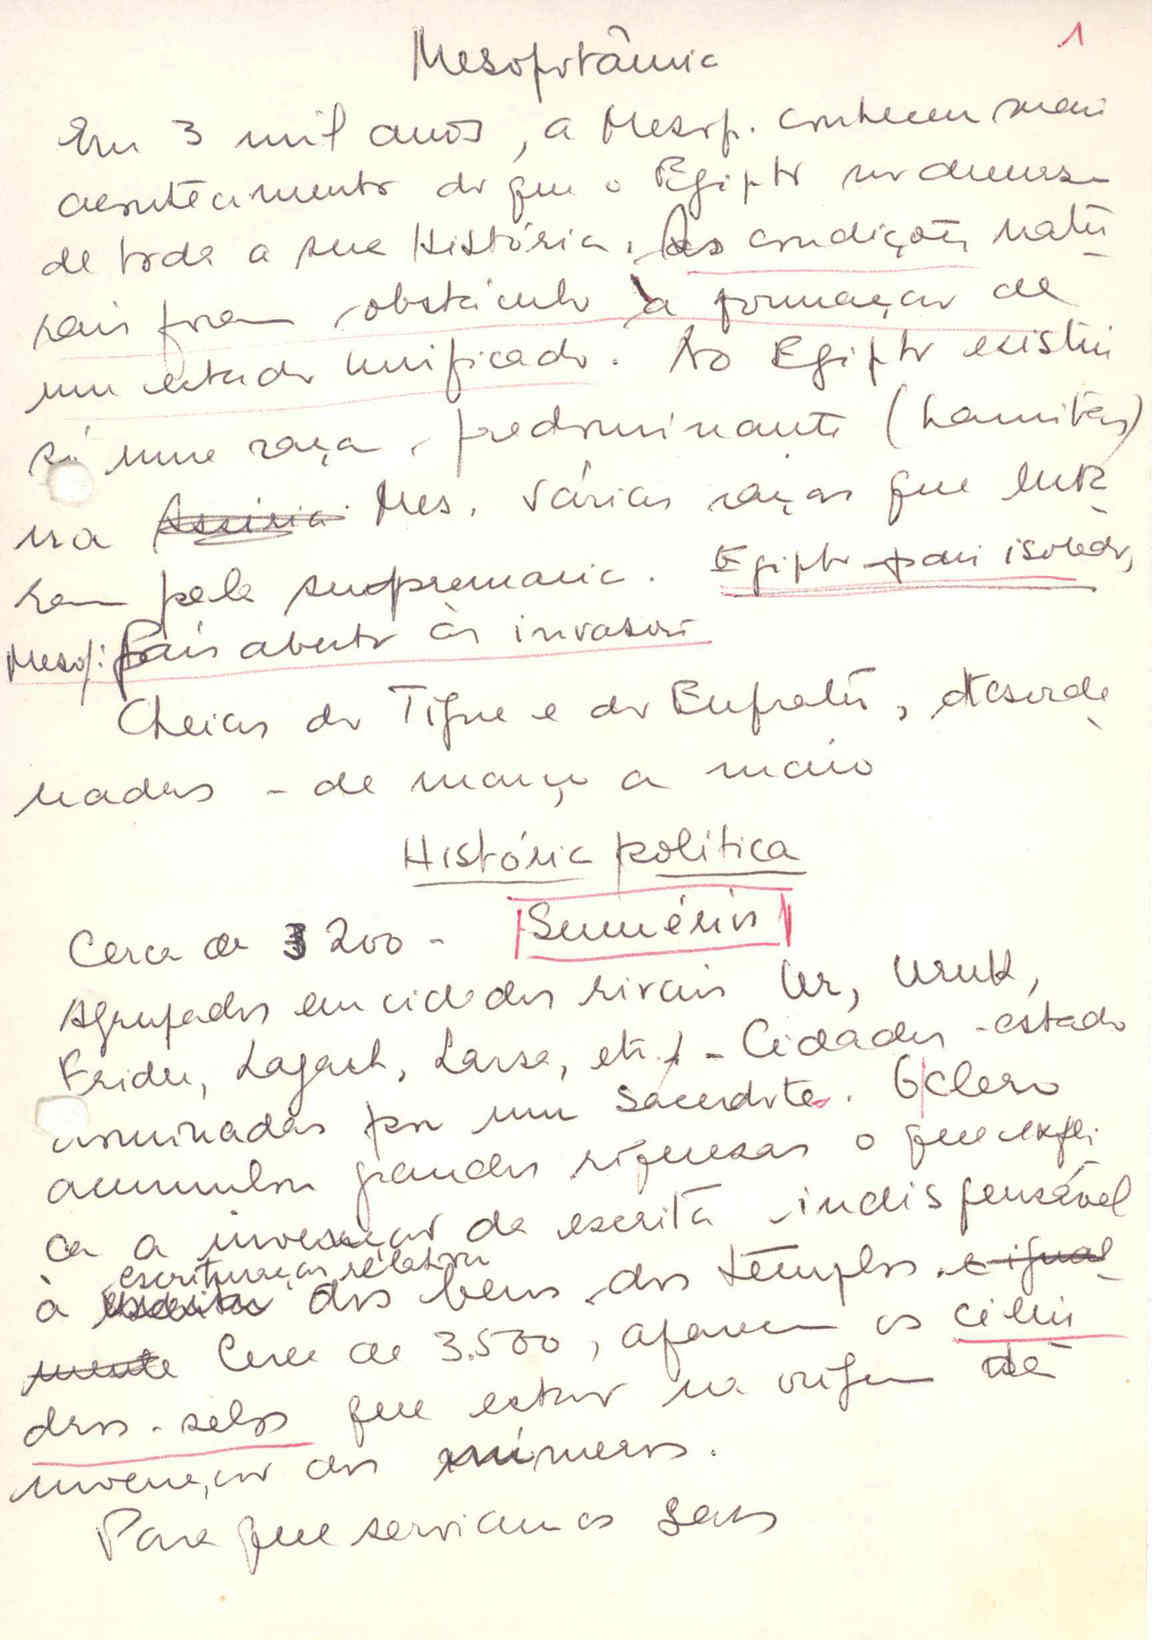 1
Mesopotâmia
Em 3 mil anos, a Mesop. conheceu mais
acontecimentos do que o Egipto no decurso
de toda a sua História. As condições natu-
rais foram obstáculo à formação de
um estado unificado. No Egipto existiu
só uma raça predominante (hamitas)
na Assíria Mes. várias raças que luta-
ram pela supremacia. Egipto país isolado,
Mesop: País aberto às invasões
Cheias do Tigre e do Eufrates, desorde-
nadas - de março a maio
História política
Cerca de 3200 - Sumérios
Agrupados em cidades rivais Ur, Uruk,
Eridu, Lagash, Larsa, etc. - Cidades-estado
dominadas por um sacerdote. O clero
acumulou grandes riquezas o que expli
ca a invenção da escrita indispensável
escrituração relativa
à dos bens dos templos. e igual-
mente Cerca de 3.500, aparecem os cilin
dros-selos que estão na origem da
invenção dos números.
Para que serviam os selos